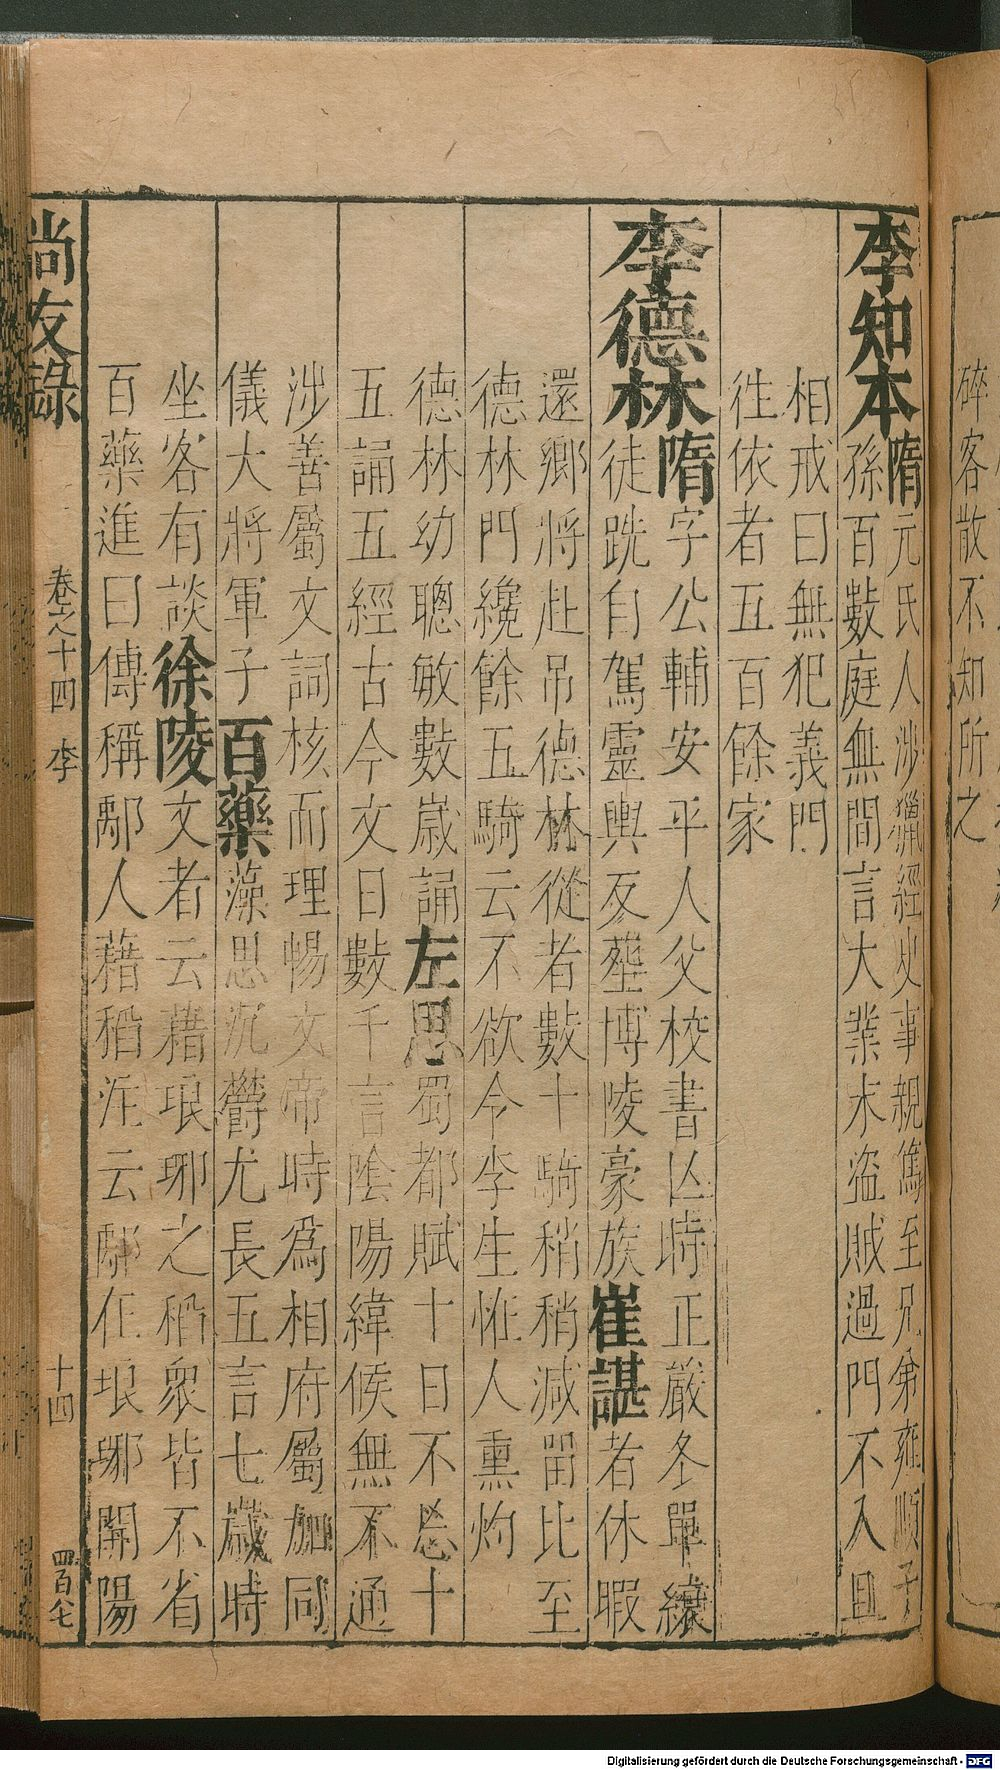 碎客散不知所之
李知本
隋元氏人涉獵經史事親篤至兄弟雍順子
孫百數庭無間言大業末盜賊過門不入且
相戒曰無犯義門
徃依者五百餘家
李德林
隋字公輔安平人父校書凶時正嚴冬單縗
徒跣自駕靈輿反塟博陵豪族崔諶者休暇
還鄉將赴吊德林從者數十騎稍稍減留比至
德林門纔餘五騎云不欲令李生恠人熏灼
德林幼聰敏數歲誦左思蜀都賦十日不忘十
五誦五經古今文日數千言陰陽緯候無不通
涉善屬文詞核而理暢文帝時爲相府屬加同
儀大將軍子百藥藻思沉欝尤長五言七歲時
坐客有談徐陵文者云藉琅琊之稻衆皆不省
百藥進曰傳稱鄅人藉稻注云鄅在琅琊開陽
尚友錄
卷之十四 李
十四
四百七
Digitalisierung gefördert durch die Deutsche Forschungsgemeinschaft - DFG